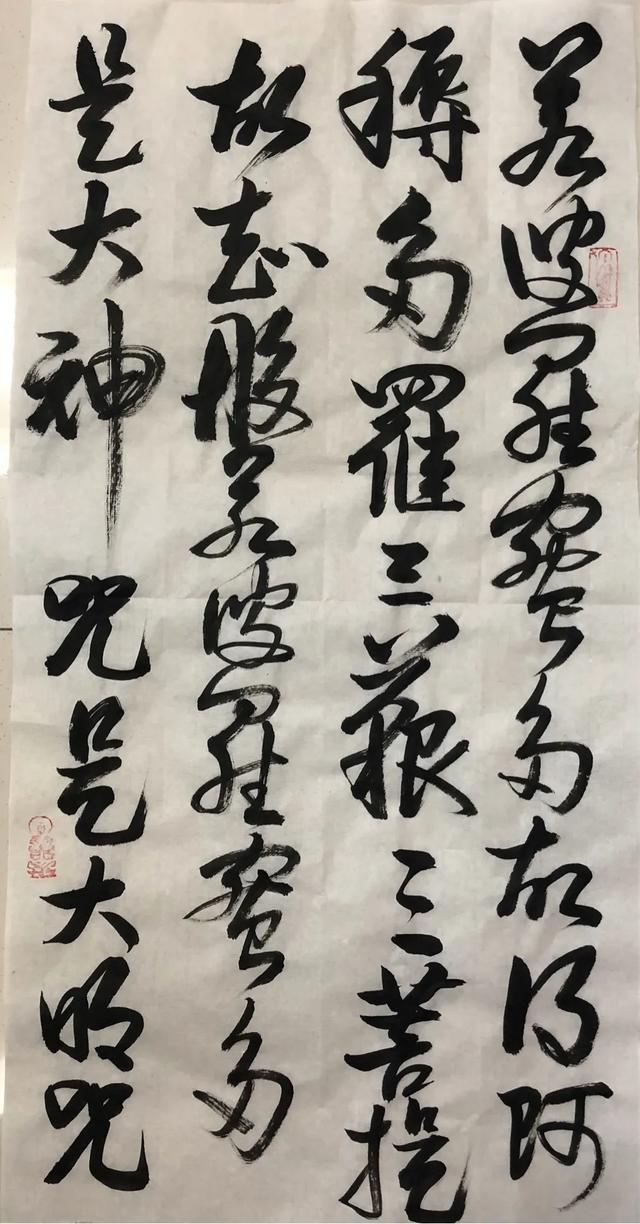 若波羅蜜多故得阿
耨多羅三藐三菩提
故知般若波羅蜜多
是大神咒是大明咒